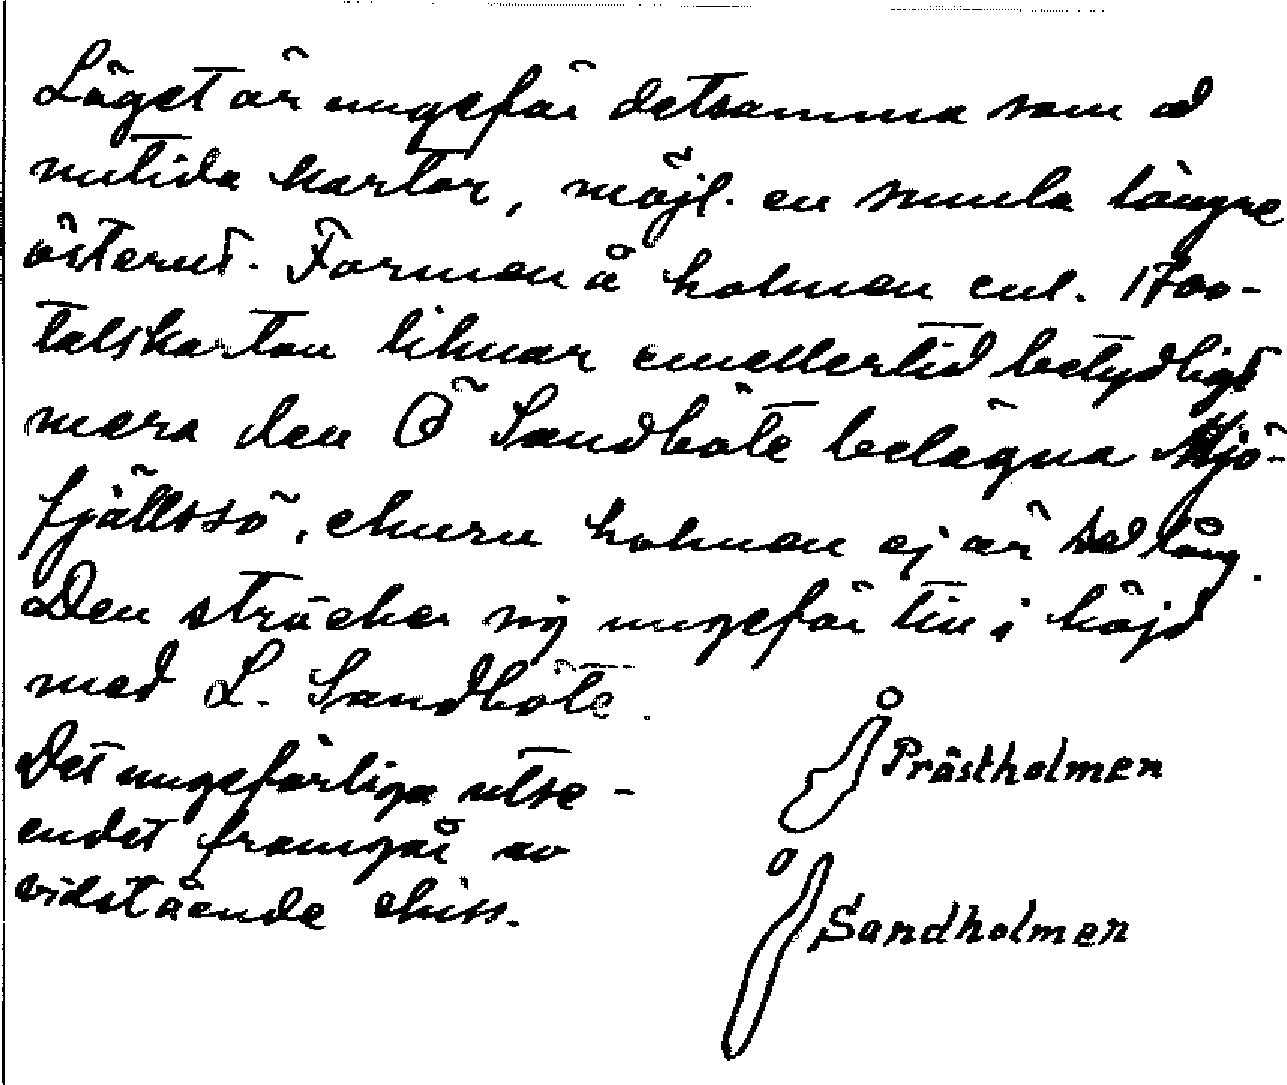 Läget är ungefär detsamma som å
nutida kartor, möjl. en smula längre
österut. Formen å holmen enl. 1700-
talskartan liknar emellertid betydligt
mera den Ö Sandböte belägna Mjö-
fjällssö, ehuru holmen ej är så lång.
Den sträcker sig ungefär till i höjd
med L. Sandböte.
Det ungefärliga utse-
endet framgår av
vidstående skiss.
Prästholmen
Sandholmen